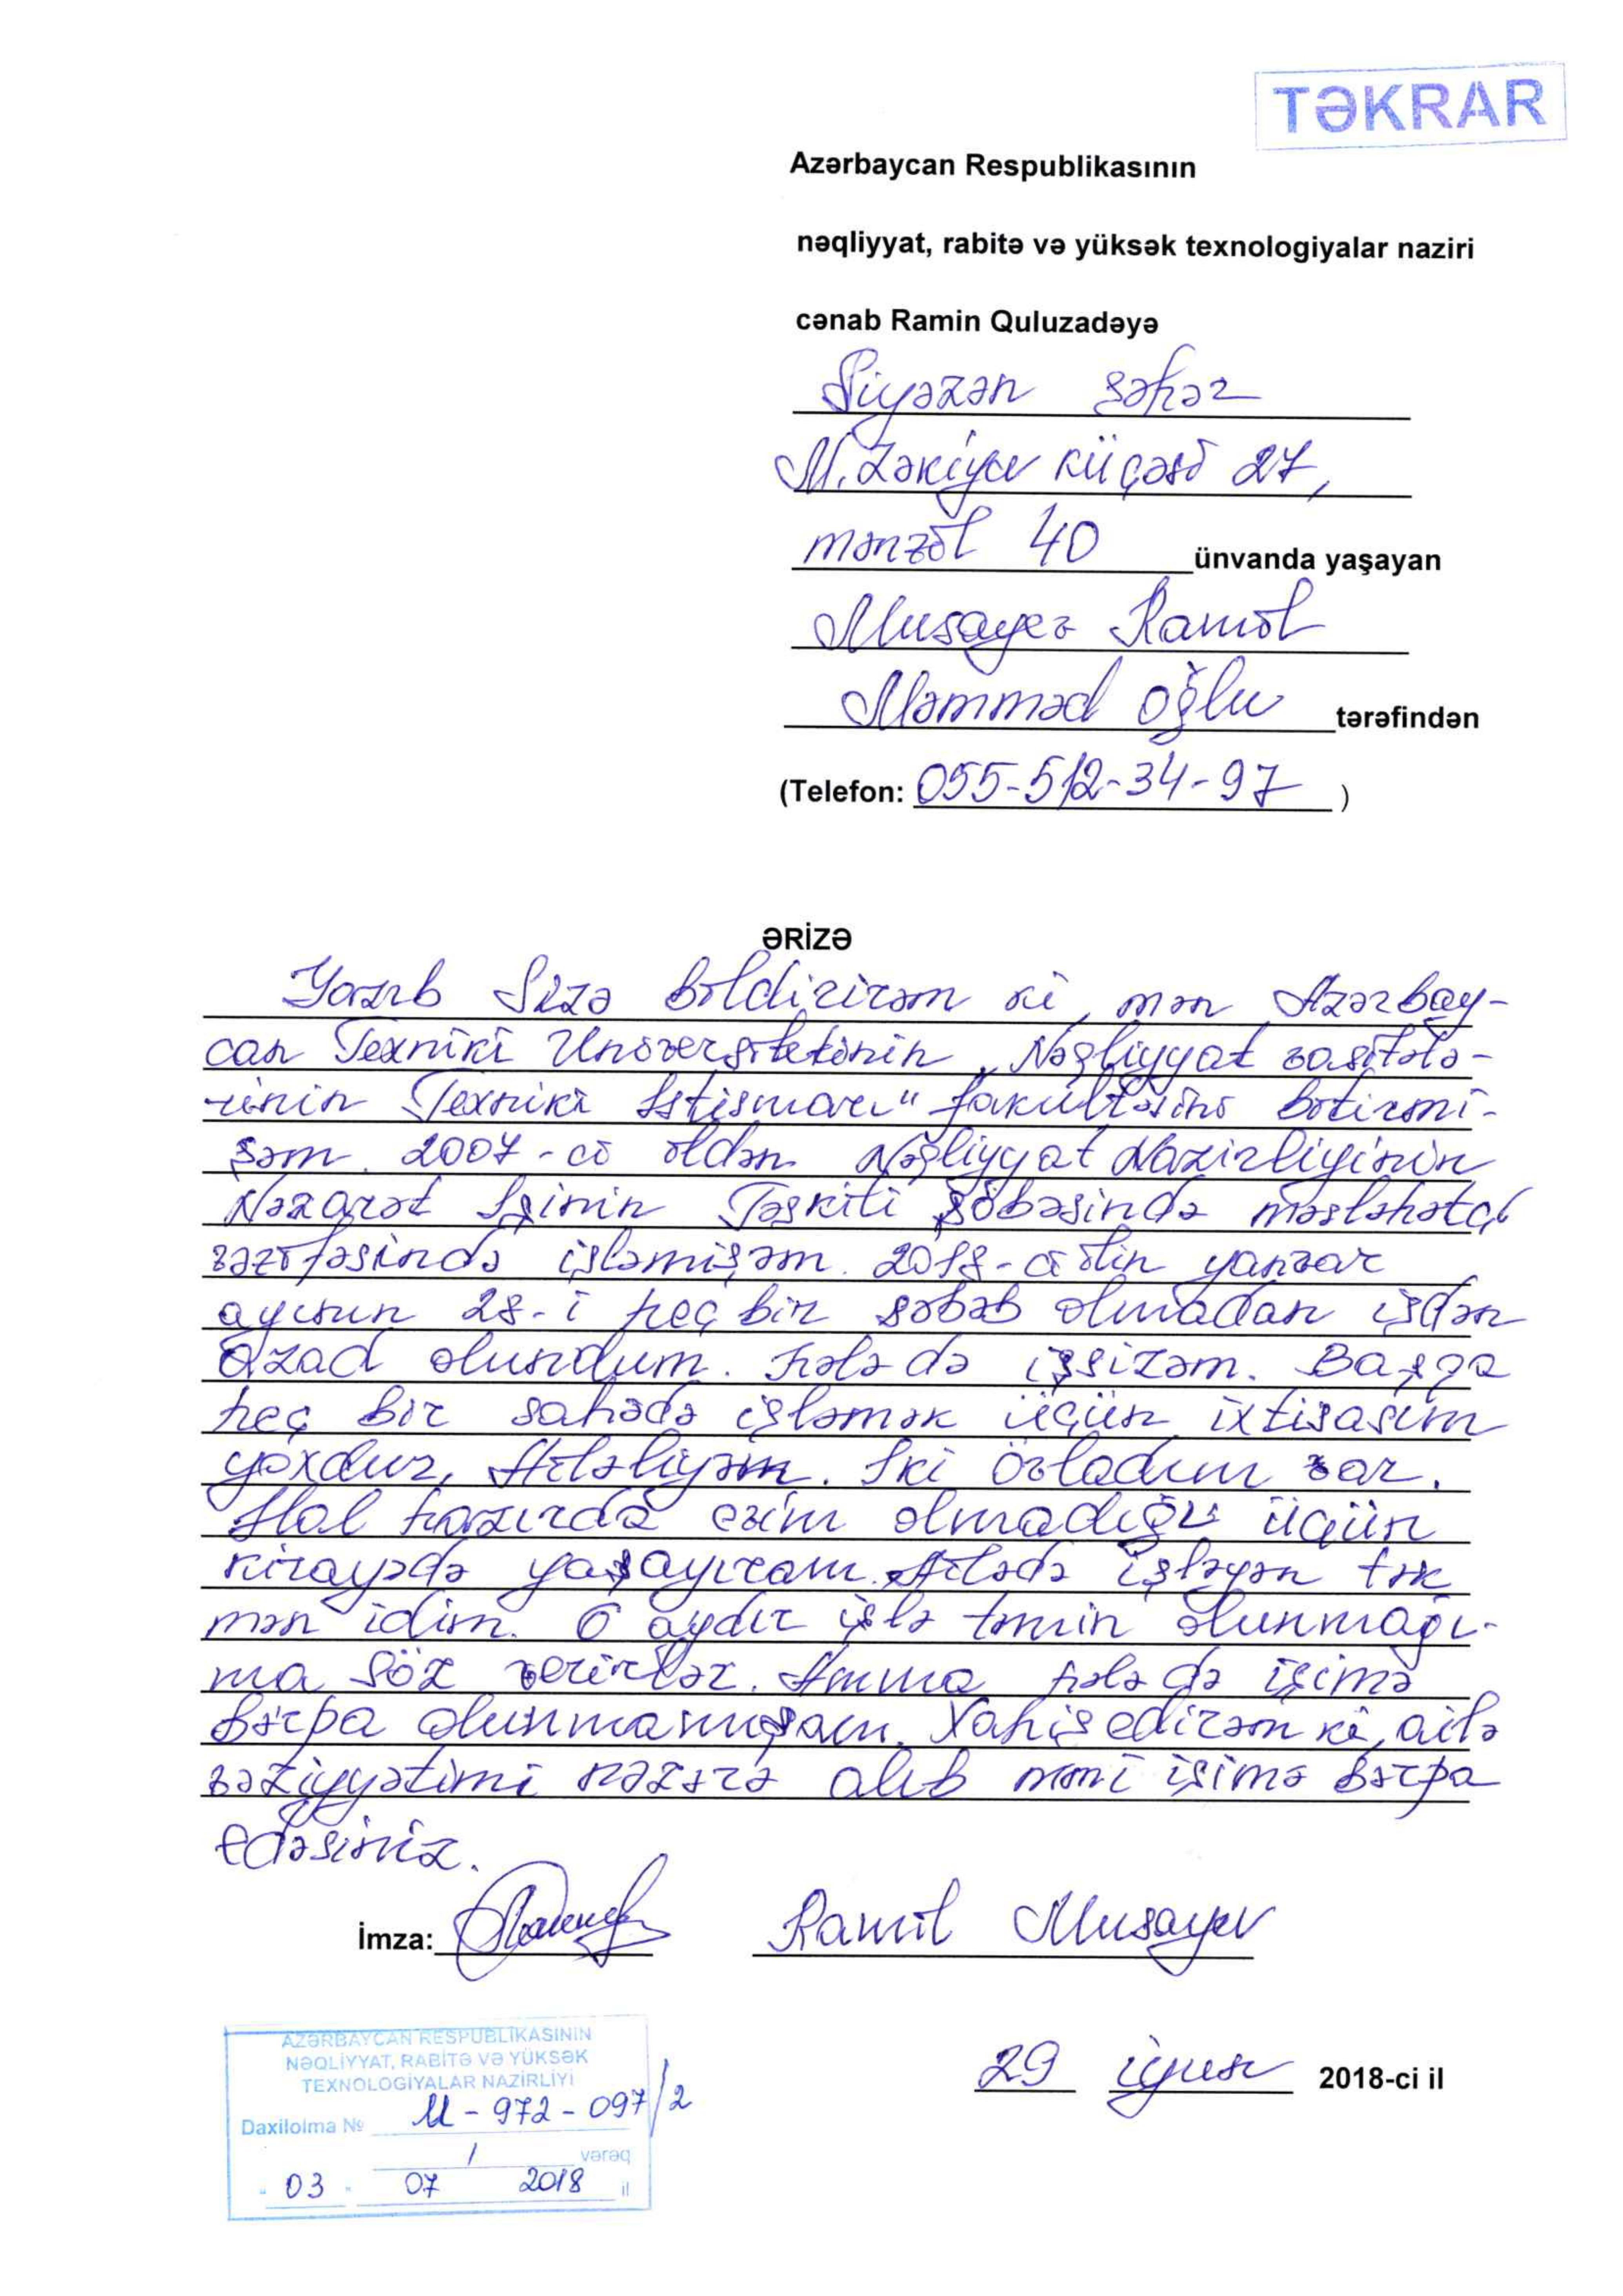 TƏKRAR
Azərbaycan Respublikasının
nəqliyyat, rabitə və yüksək texnologiyalar naziri
cənab Ramin Quluzadəyə
Siyəzən şəhər
M. Zəkiyev küçəsi 27,
mənzil 40 ünvanda yaşayan
Musayev Ramil
Məmməd oğlu tərəfindən
(Telefon: 055-512-34-97 )
ƏRİZƏ
Yazıb Sizə bildirirəm ki, mən Azərbay-
can Texniki Universitetinin „Nəqliyyat vasitələ-
rinin Texniki İstismarı" fakültəsini bitirmi-
şəm. 2007-ci ildən Nəqliyyat Nazirliyinin
Nəzarət İşinin Təşkili şöbəsində məsləhətçi
vəzifəsində işləmişəm. 2018-ci ilin yanvar
ayının 28-i heç bir səbəb olmadan işdən
azad olundum. Hələ də işsizəm. Başqa
heç bir sahədə işləmək üçün ixtisasım
yoxdur. Ailəliyəm. İki övladım var.
Hal hazırda evim olmadığı üçün
kirayədə yaşayıram. Ailədə işləyən tək
mən idim. 6 aydır işlə təmin olunmağı-
ma söz verirlər. Amma hələ də işimə
bərpa olunmamışam. Xahiş edirəm ki, ailə
vəziyyətimi nəzərə alıb məni işimə bərpa
edəsiniz.
İmza: Ramil Musayev
29 iyun 2018-ci il
AZƏRBAYCAN RESPUBLİKASININ
NƏQLİYYAT, RABİTƏ VƏ YÜKSƏK
TEXNOLOGİYALAR NAZİRLİYİ
Daxilolma № M-972-097/2
1 vərəq
03 07 2018 il